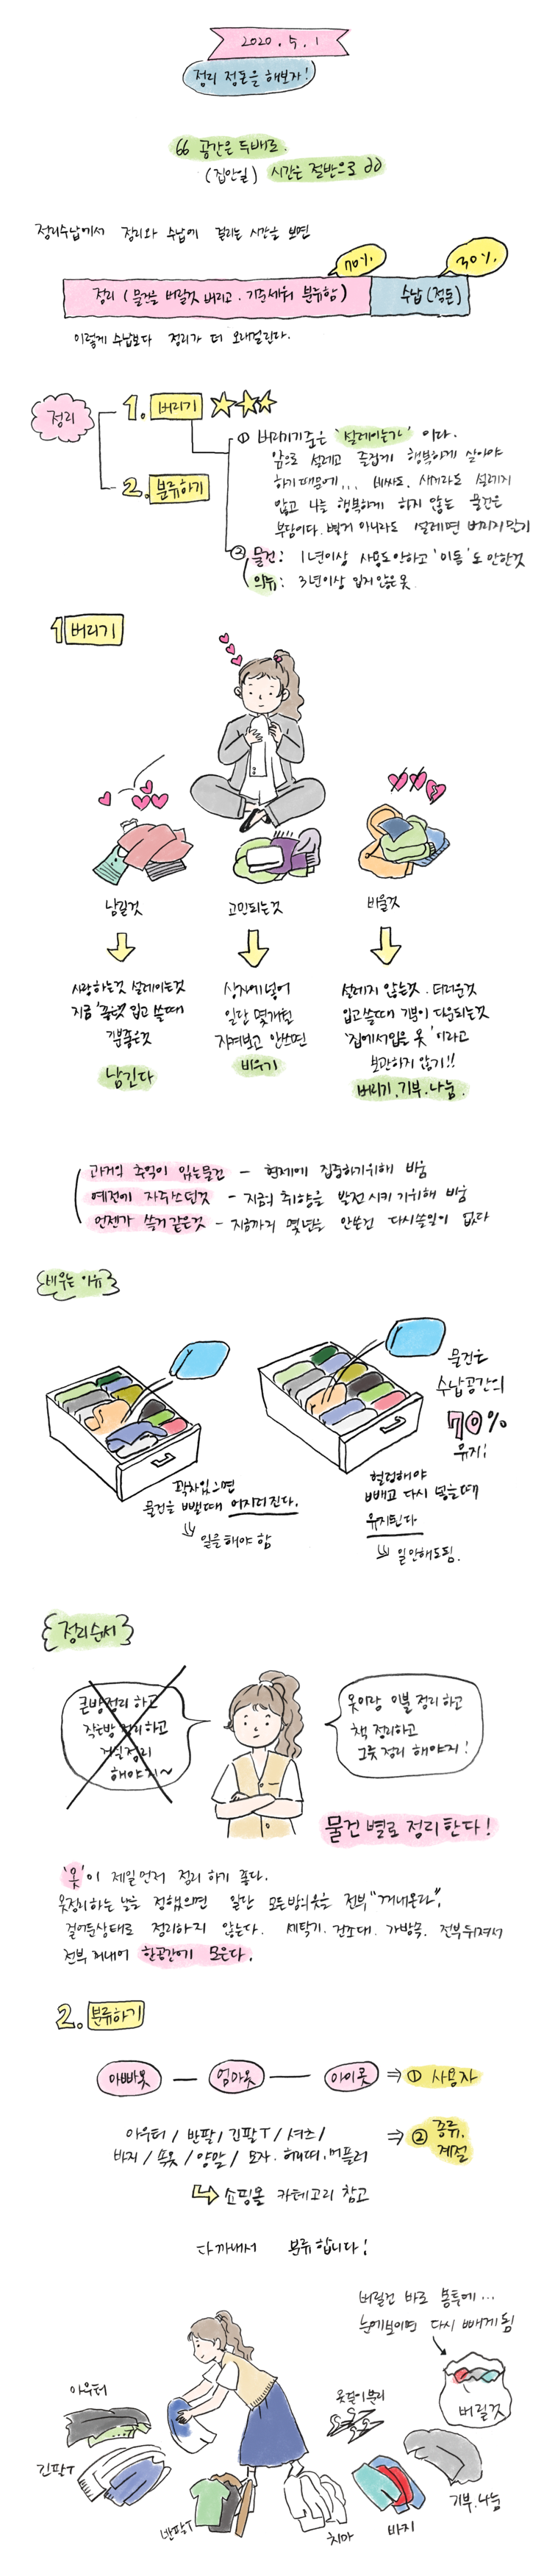 2020. 5. 1
정리 정돈을 해보자!
“ 공간은 두배로.
(집안일) 시간은 절반으로 ”
정리수납에서 정리와 수납에 걸리는 시간을 보면
70% 30%
정리 (물건을 버릴것 버리고. 기준세워 분류함) 수납 (정돈)
이렇게 수납보다 정리가 더 오래걸린다.
정리
1. 버리기
2. 분류하기
① 버리기기준은 '설레이는가' 이다.
앞으로 설레고 즐겁게 행복하게 살아야
하기때문에... 비싸도. 새거라도 설레지
않고 나를 행복하게 하지 않는 물건은
부담이다. 아니라도 설레면 버리지 말기
② 물건: 1년이상 사용도안하고 '이동'도 안한것
의류: 3년이상 입지않은옷
1 버리기
남길것
고민되는것
비울것
사랑하는것 설레이는것
지금 '좋은것' 입고 쓸때
기분좋은것
남긴다
상자에넣어
일단 몇개월
지켜보고 안쓰면
비우기
설레지 않는것. 더러운것
입고쓸때 기분이 다운되는것
'집에서입을 옷' 이라고
보관하지 않기!!
버리기. 기부. 나눔.
과거의 추억이 있는물건 - 현재에 집중하기위해 비움
예전에 자주쓰던것 - 지금의 취향을 발전시키기위해 비움
언젠가 쓸거같은것 - 지금까지 몇년을 안쓴건 다시쓸일이 없다
비우는 이유
꽉차있으면
물건을 뺄때 어지러진다.
일을해야 함
물건은
수납공간의
70%
유지!
헐렁해야
빼고 다시 넣을때
유지된다
일안해도됨.
정리순서
큰방정리 하고
작은방 정리하고
거실정리
해야지~
옷이랑 이불 정리하고
책 정리하고
그릇정리 해야지!
물건 별로 정리한다!
'옷'이 제일먼저 정리하기 좋다.
옷정리하는 날을 정했으면 일단 모든방의옷을 전부 “꺼내온다”.
걸어둔상태로 정리하지 않는다. 세탁기. 건조대. 가방속. 전부뒤져서
전부 꺼내어 한공간에 모은다.
2. 분류하기
아빠옷 — 엄마옷 — 아이옷 ⇒ ① 사용자
아우터 / 반팔 / 긴팔T / 셔츠 /
바지 / 속옷 / 양말 / 모자. 허리띠. 머플러
⇒ ② 종류.
계절
쇼핑몰 카테고리 참고
다꺼내서 분류합니다!
버릴건 바로 봉투에...
눈에보이면 다시 빼게됨
버릴것
아우터
긴팔T
반팔T
옷걸이분리
치마
바지
기부.나눔